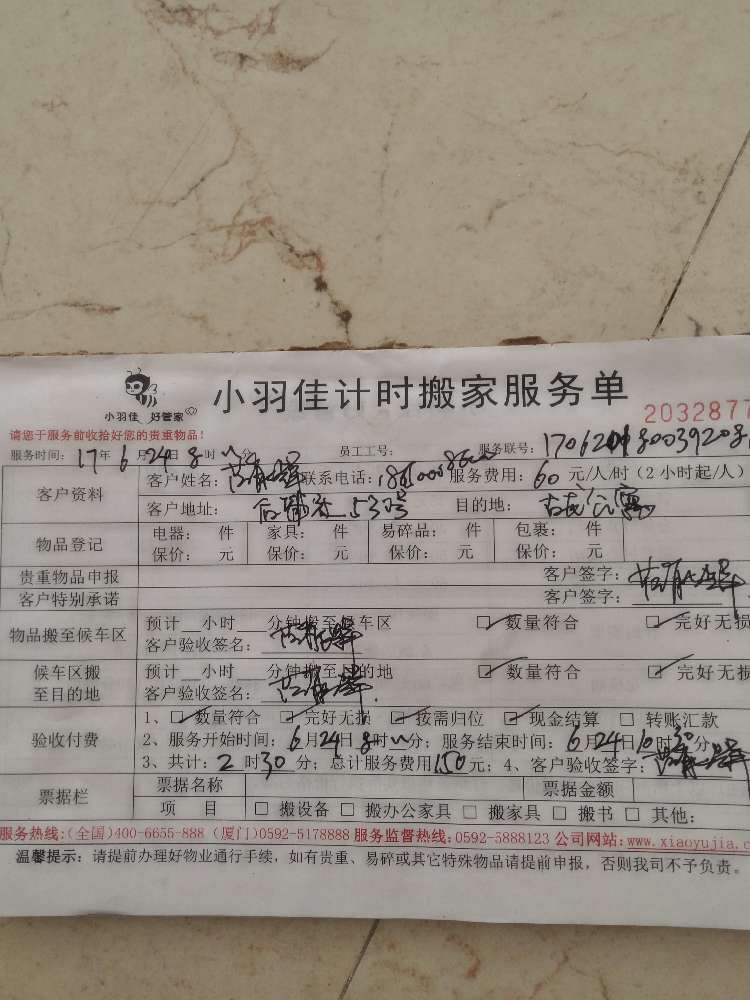 小羽佳 好管家
小羽佳计时搬家服务单
2032877
请您于服务前收拾好您的贵重物品!
服务时间: 17年6月24日8时 分 员工工号: 服务联号:
客户资料 客户姓名: 联系电话: 服务费用: 60 元/人/时(2小时起/人)
客户地址: 53号 目的地:
物品登记 电器: 件 家具: 件 易碎品: 件 包裹: 件
保价: 元 保价: 元 保价: 元 保价: 元
贵重物品申报 客户签字:
客户特别承诺 客户签字:
物品搬至候车区 预计__小时___分钟搬至候车区 ☑ 数量符合 ☑ 完好无损
客户验收签名:
候车区搬至目的地 预计__小时___分钟搬至目的地 ☑ 数量符合 ☑ 完好无损
客户验收签名:
验收付费 1、☑ 数量符合 ☑ 完好无损 ☑ 按需归位 ☑ 现金结算 ☐ 转账汇款
2、服务开始时间: 6月24日8时 分; 服务结束时间: 6月24日10时30分
3、共计: 2时30分; 总计服务费用150元; 4、客户验收签字:
票据栏 票据名称 票据金额
项 目 ☐ 搬设备 ☐ 搬办公家具 ☐ 搬家具 ☐ 搬书 ☐ 其他:
服务热线:(全国)400-6655-888 (厦门)0592-5178888 服务监督热线:0592-5888123 公司网站:www.xiaoyujia.c
温馨提示: 请提前办理好物业通行手续, 如有贵重、易碎或其它特殊物品请提前申报, 否则我司不予负责。